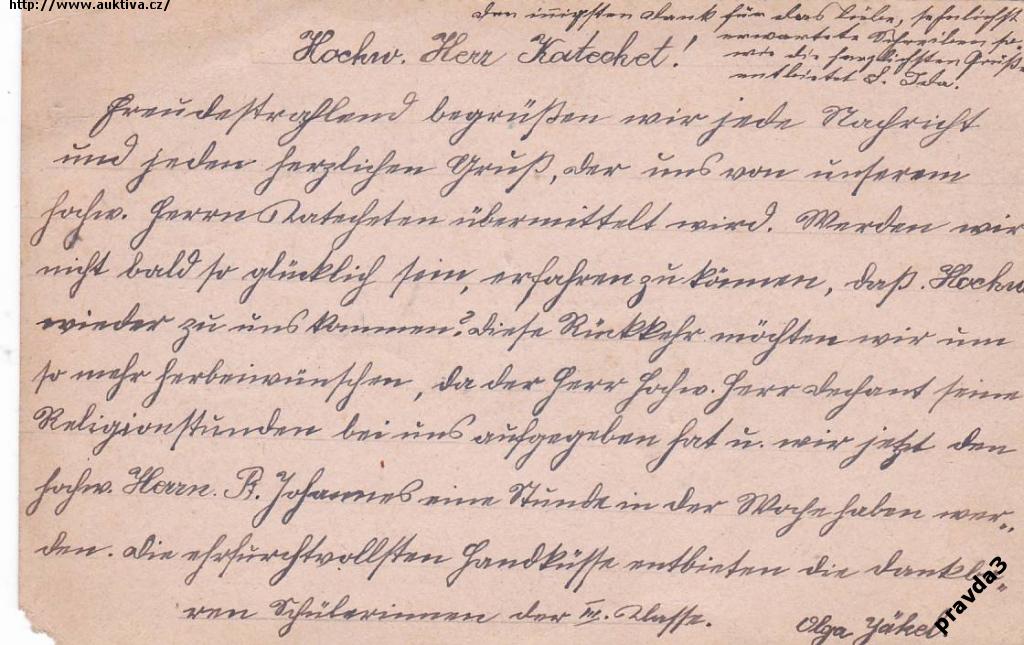 http://www.auktiva.cz/
den innigsten Dank für das liebe, sehnlichst
erwartete Schreiben so-
wie die herzlichsten Grüße
entbietet S. Ida.
Hochw. Herr Katechet!
Freudestrahlend begrüßen wir jede Nachricht
und jeden herzlichen Gruß, der uns von unserem
hochw. Herrn Katecheten übermittelt wird. Werden wir
nicht bald so glücklich sein, erfahren zu können, daß Hochw
wieder zu uns kommen? Diese Rückkehr möchten wir um
so mehr herbeiwünschen, da der Herr Hochw. Herr Dechant seine
Religionstunden bei uns aufgegeben hat u. wir jetzt den
hochw. Herrn. P. Johannes eine Stunde in der Woche haben wer„
den. Die ehrfurchtvollsten Handküsse entbieten die dankba„
ren Schülerinnen der III. Klasse.
Olga Jäkel
pravda3